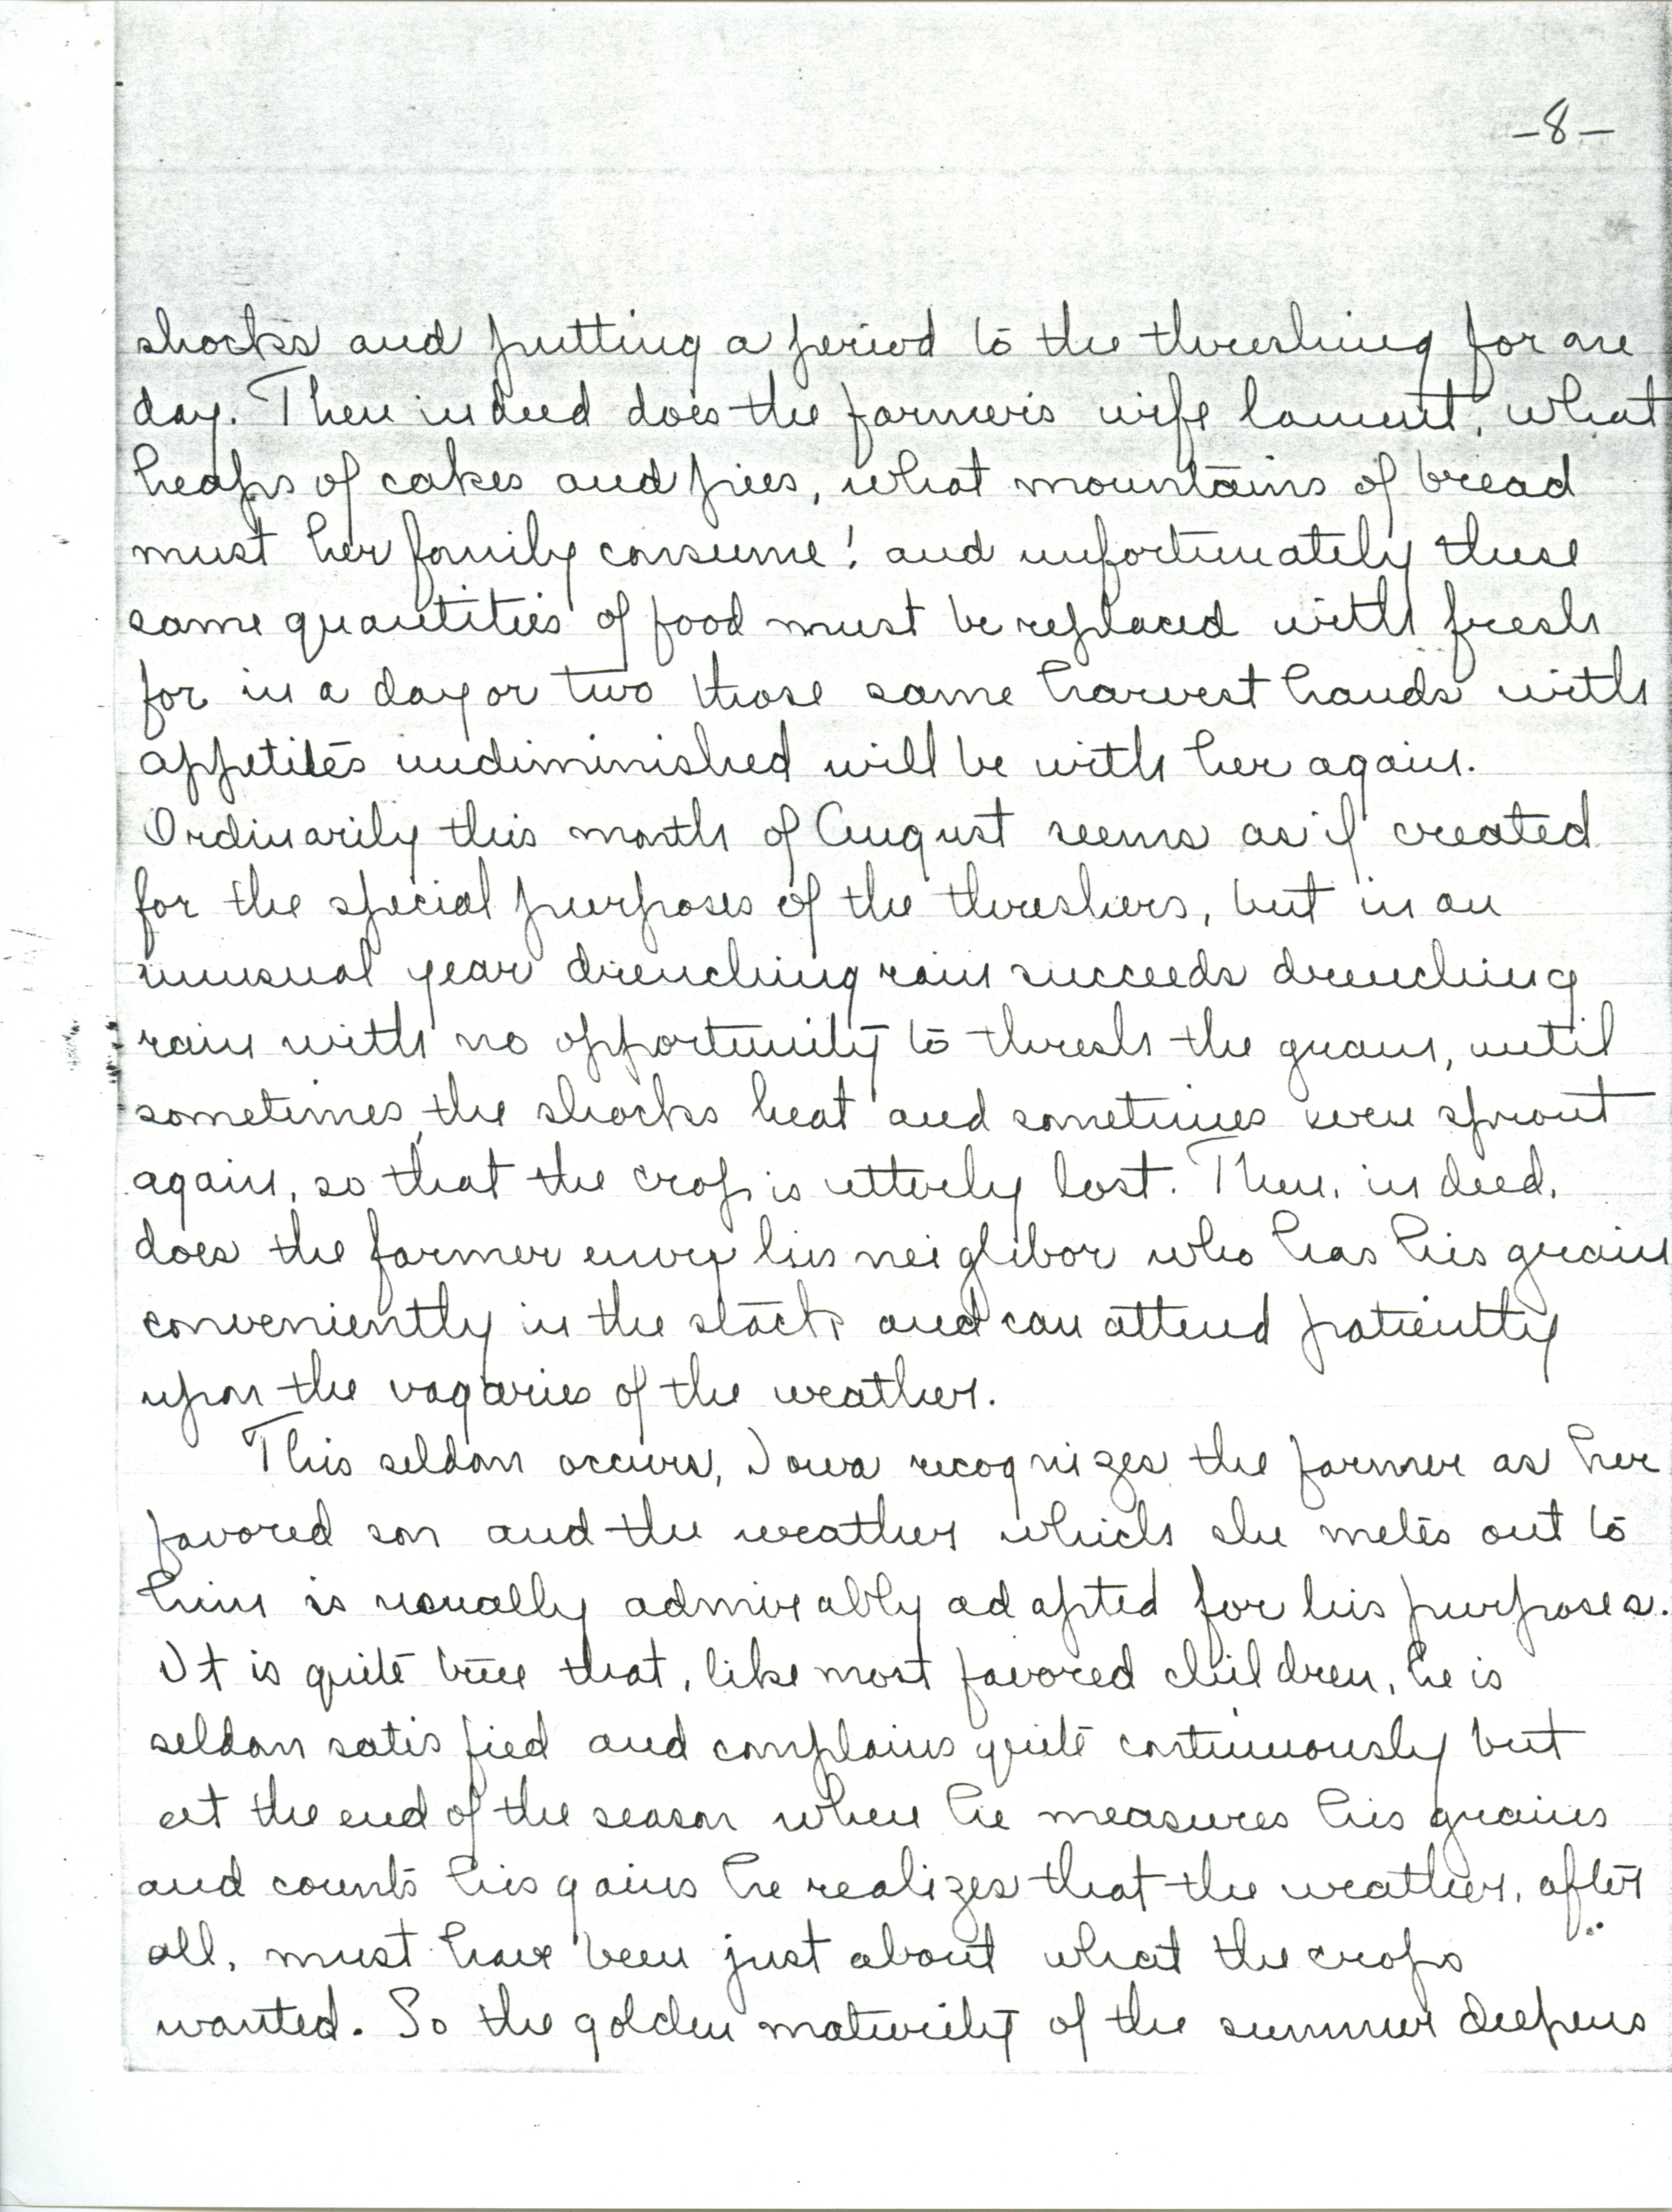 -8-
shocks and putting a period to the threshing for one
day. Then indeed does the farmer's wife lament, what
heaps of cakes and pies, what mountains of bread
must her family consume! and unfortunately these
same quantities of food must be replaced with fresh
for in a day or two those same harvest hands with
appetites undiminished will be with her again.
Ordinarily this month of August seems as if created
for the special purposes of the threshers, but in an
unusual year drenching rain succeeds drenching
rain with no opportunity to thresh the grain, until
sometimes, the shocks heat and sometimes even sprout
again, so that the crop is utterly lost. Then, indeed,
does the farmer envy his neighbor who has his grain
conveniently in the stack and can attend patiently
upon the vagaries of the weather.
This seldom occurs, Iowa recognizes the farmer as her
favored son and the weather which she metes out to
him is usually admirably adapted for his purposes.
It is quite true that, like most favored children, he is
seldom satisfied and complains quite continuously but
at the end of the season when he measures his grains
and counts his gains he realizes that the weather, after
all, must have been just about what the crops
wanted. So the golden maturity of the summer deepens